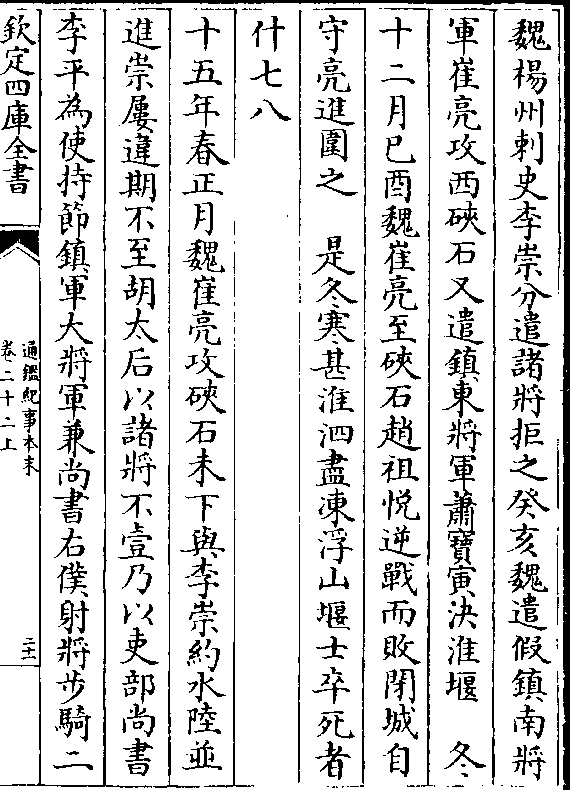 魏楊州刺史李崇分遣諸將拒之癸亥魏遣假鎮南將
軍崔亮攻西硤石又遣鎮東將軍蕭寶寅決淮堰　冬
十二月己酉魏崔亮至硤石趙祖悅逆戰而敗閉城自
守亮進圍之　是冬寒甚淮泗盡凍浮山堰士卒死者
什七八
十五年春正月魏崔亮攻硤石未下與李崇約水陸並
進崇屢違期不至胡太后以諸將不壹乃以吏部尚書
李平為使持節鎮軍大將軍兼尚書右僕射將步騎二
欽定四庫全書
通鑑紀事本末
卷二十二上
二十一